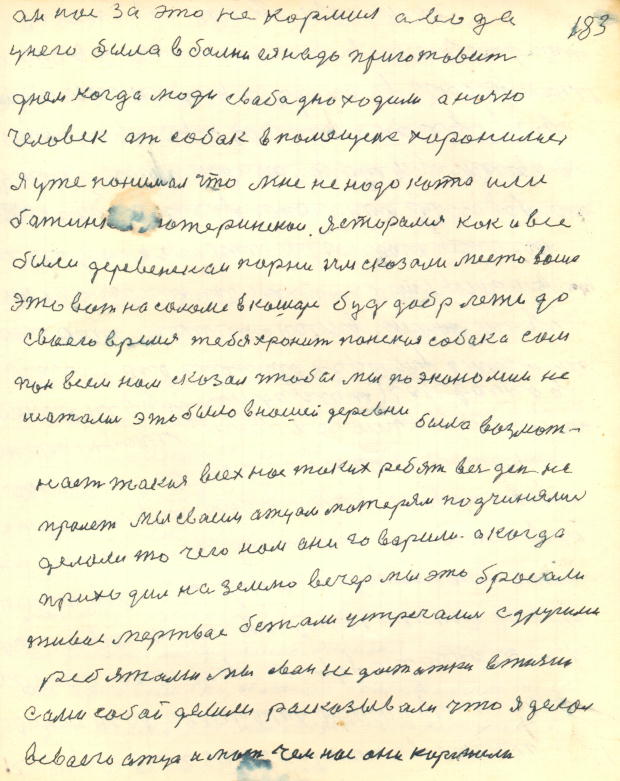 183
ан нас за это не кормил а вода
унего была в балки ея надо приготовит
днем когда люди свабадно ходили а ночю
человек ат собак в помещене хоронилися
я уже понимал что мне не надо кота или
батинка материнской. я сторался как и все
были деревенскаи парни им сказали место ваше
это вот на саломе в кошаре буд добр лежи до
сваего время тебя хронит панская собака сам
пан всем нам сказал чтобы мы по экономии не
шатали это было в нашей деревни была возмож-
наст такия всех нас таких ребят вез ден не
пралет мы сваим атцам матерям подчинялис
делали то чего нам они говарили. а когда
приходил на землю вечер мы это бросали
живое мертвае бежали устречалис с другими
ребятами мы сваи недостатки в жизни
сами собой делили расказывали что я делал
у сваего атца и мат чем нас они кармили